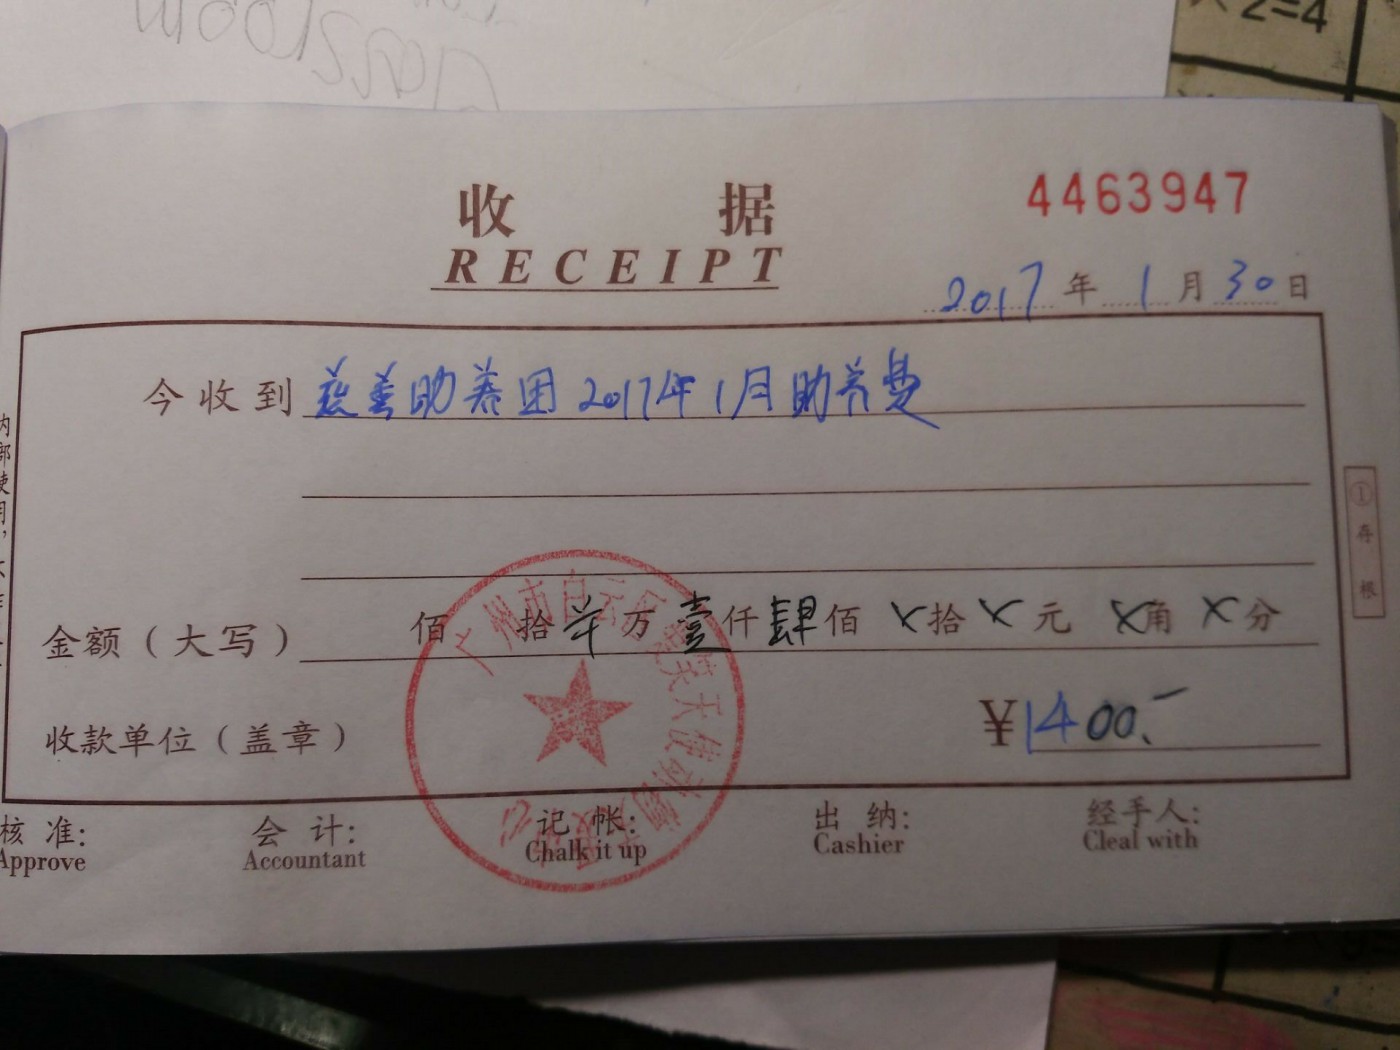 2=4
classroom
收据
4463947
RECEIPT
2017年1月30日
今收到 慈善助养团2017年1月助养费
①存根
金额（大写） 佰 拾 羊 万 壹 仟 肆 佰 X 拾 X 元 X 角 X 分
收款单位（盖章） ¥1400.-
广州市白云
天使
核准: 会计: 记帐: 出纳: 经手人:
Approve Accountant Chalk it up Cashier Cleal with